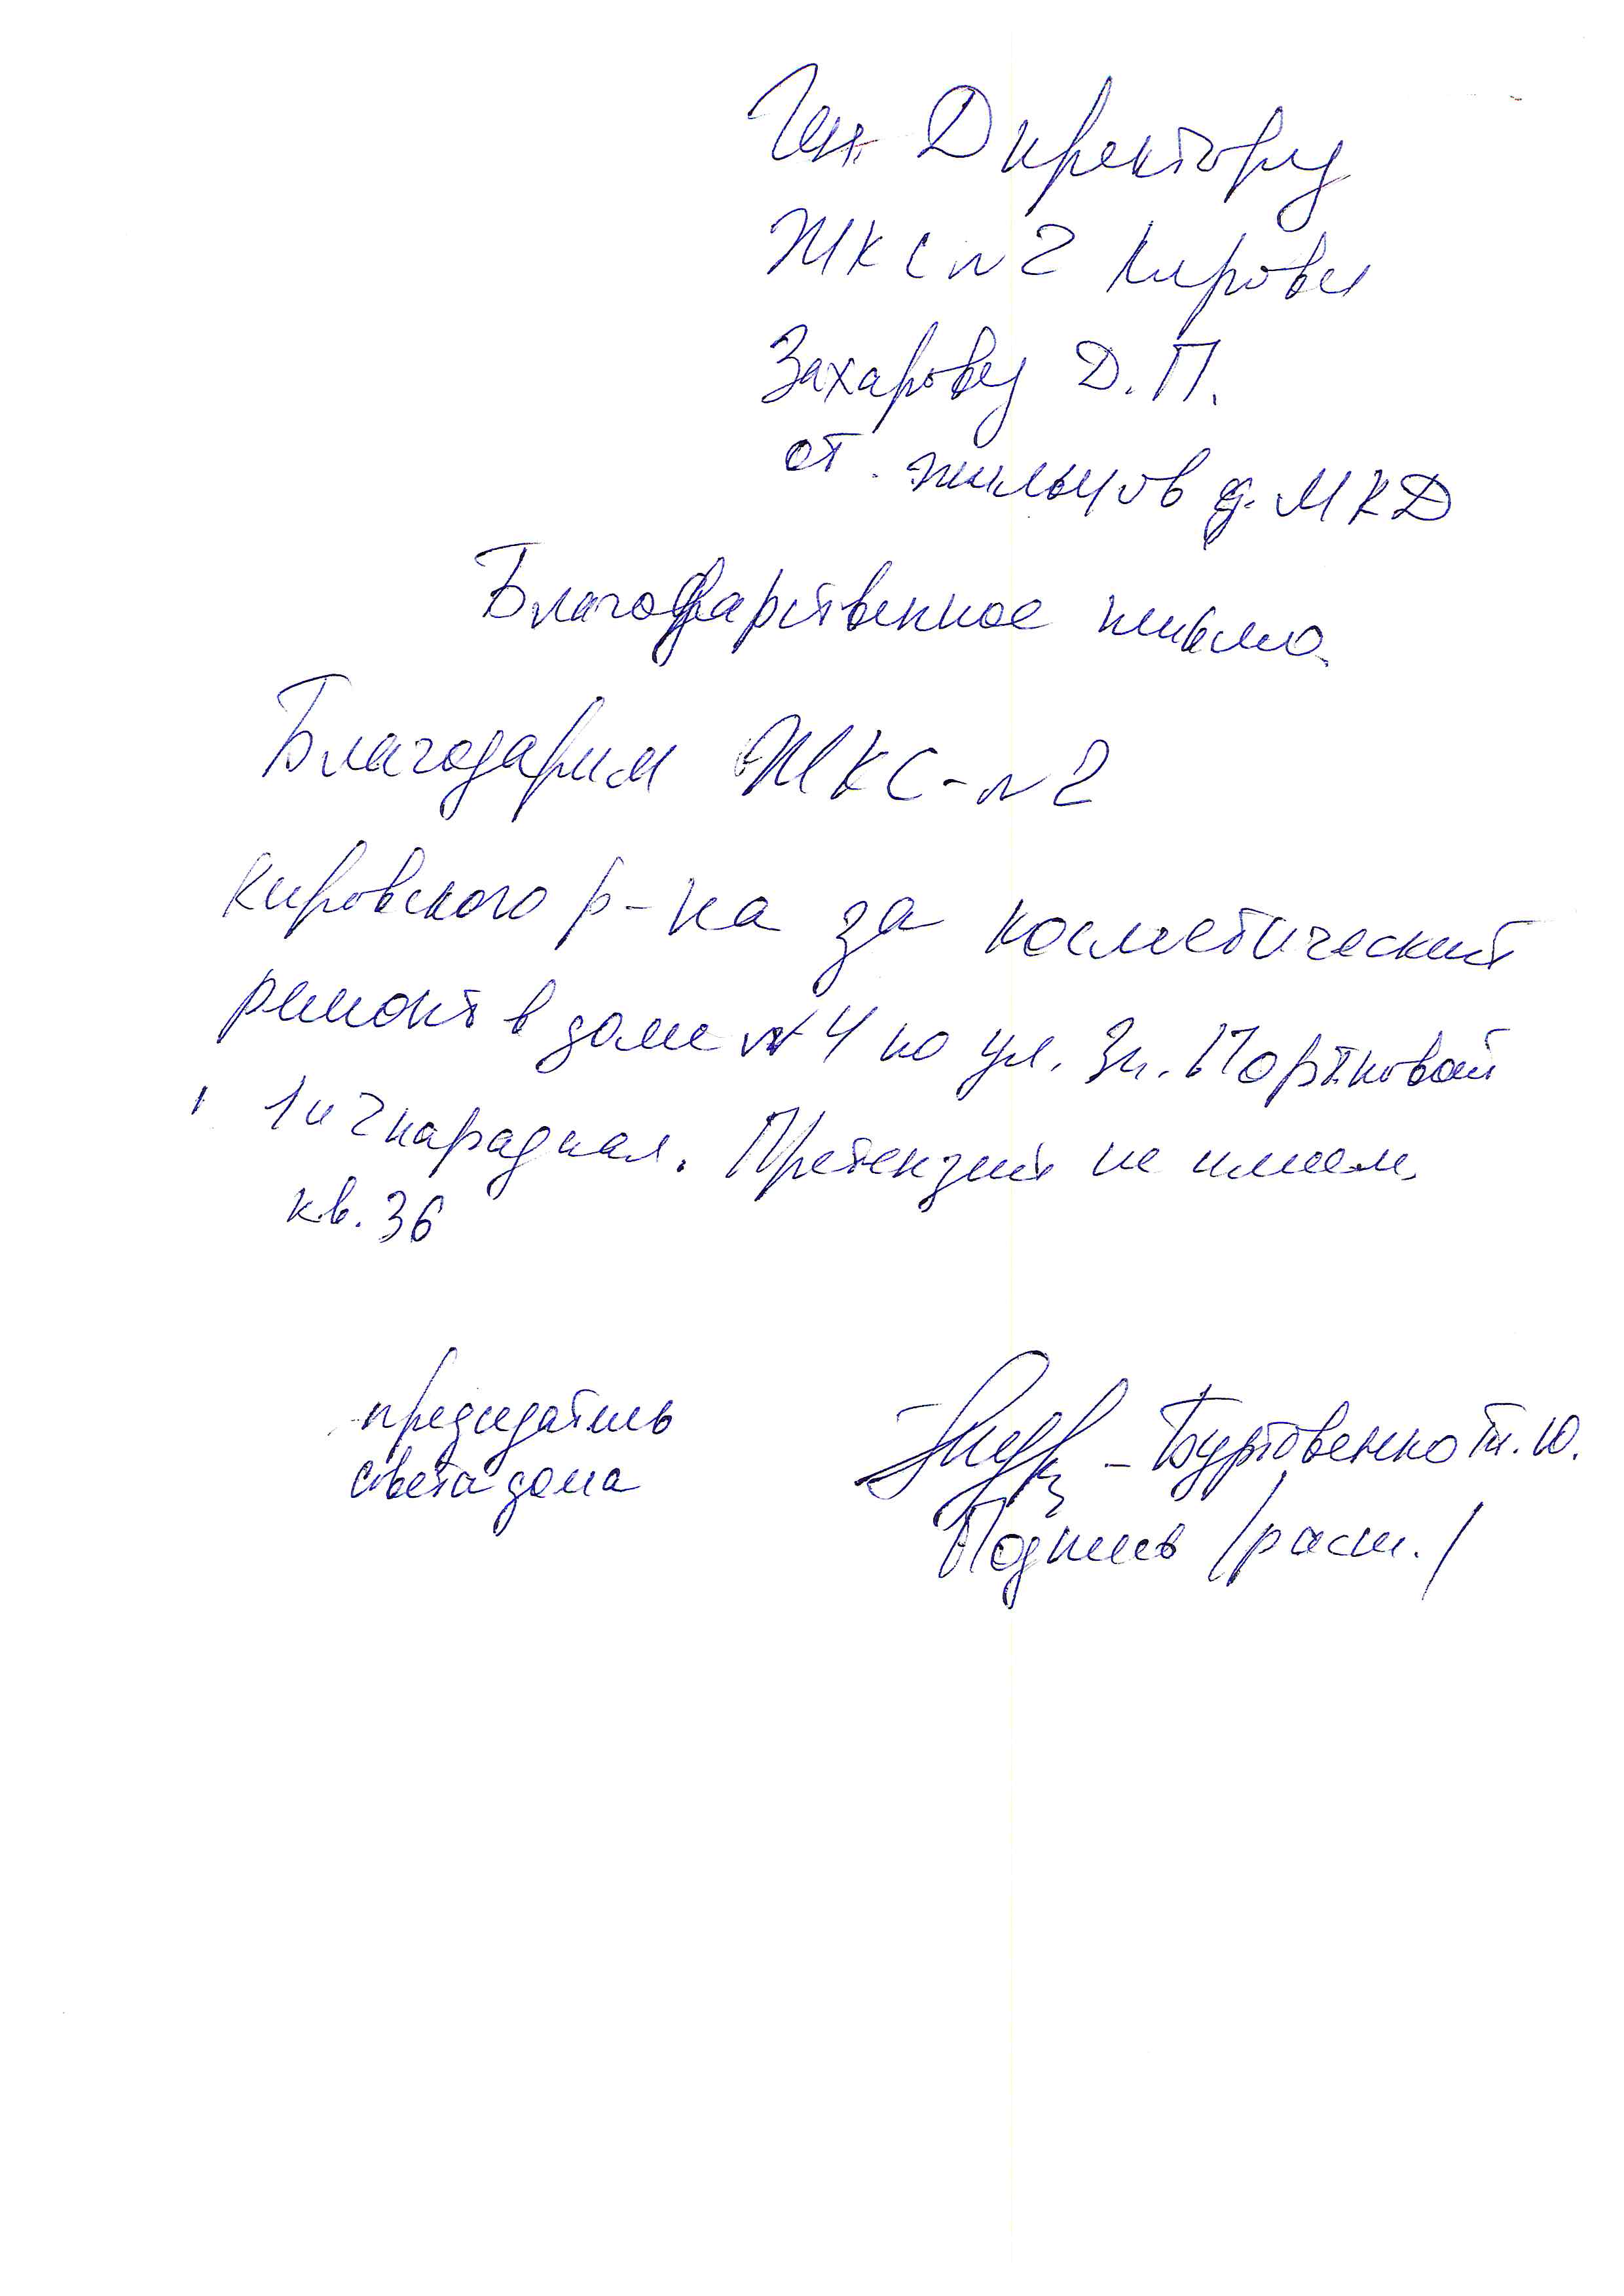 Ген Директору
ЖКС №2 Кировск
Захарову Д.П.
от жильцов д. МКД
Благодарственное письмо.
Благодарим ЖКС-№2
Кировского р-на за косметический
ремонт в доме №4 по ул. Зи. Портновой
1 и 2 парадная. Претензий не имеем.
кв. 36
председатель
совета дома
- Буртовенко Т.Ю.
Подпись /расш./